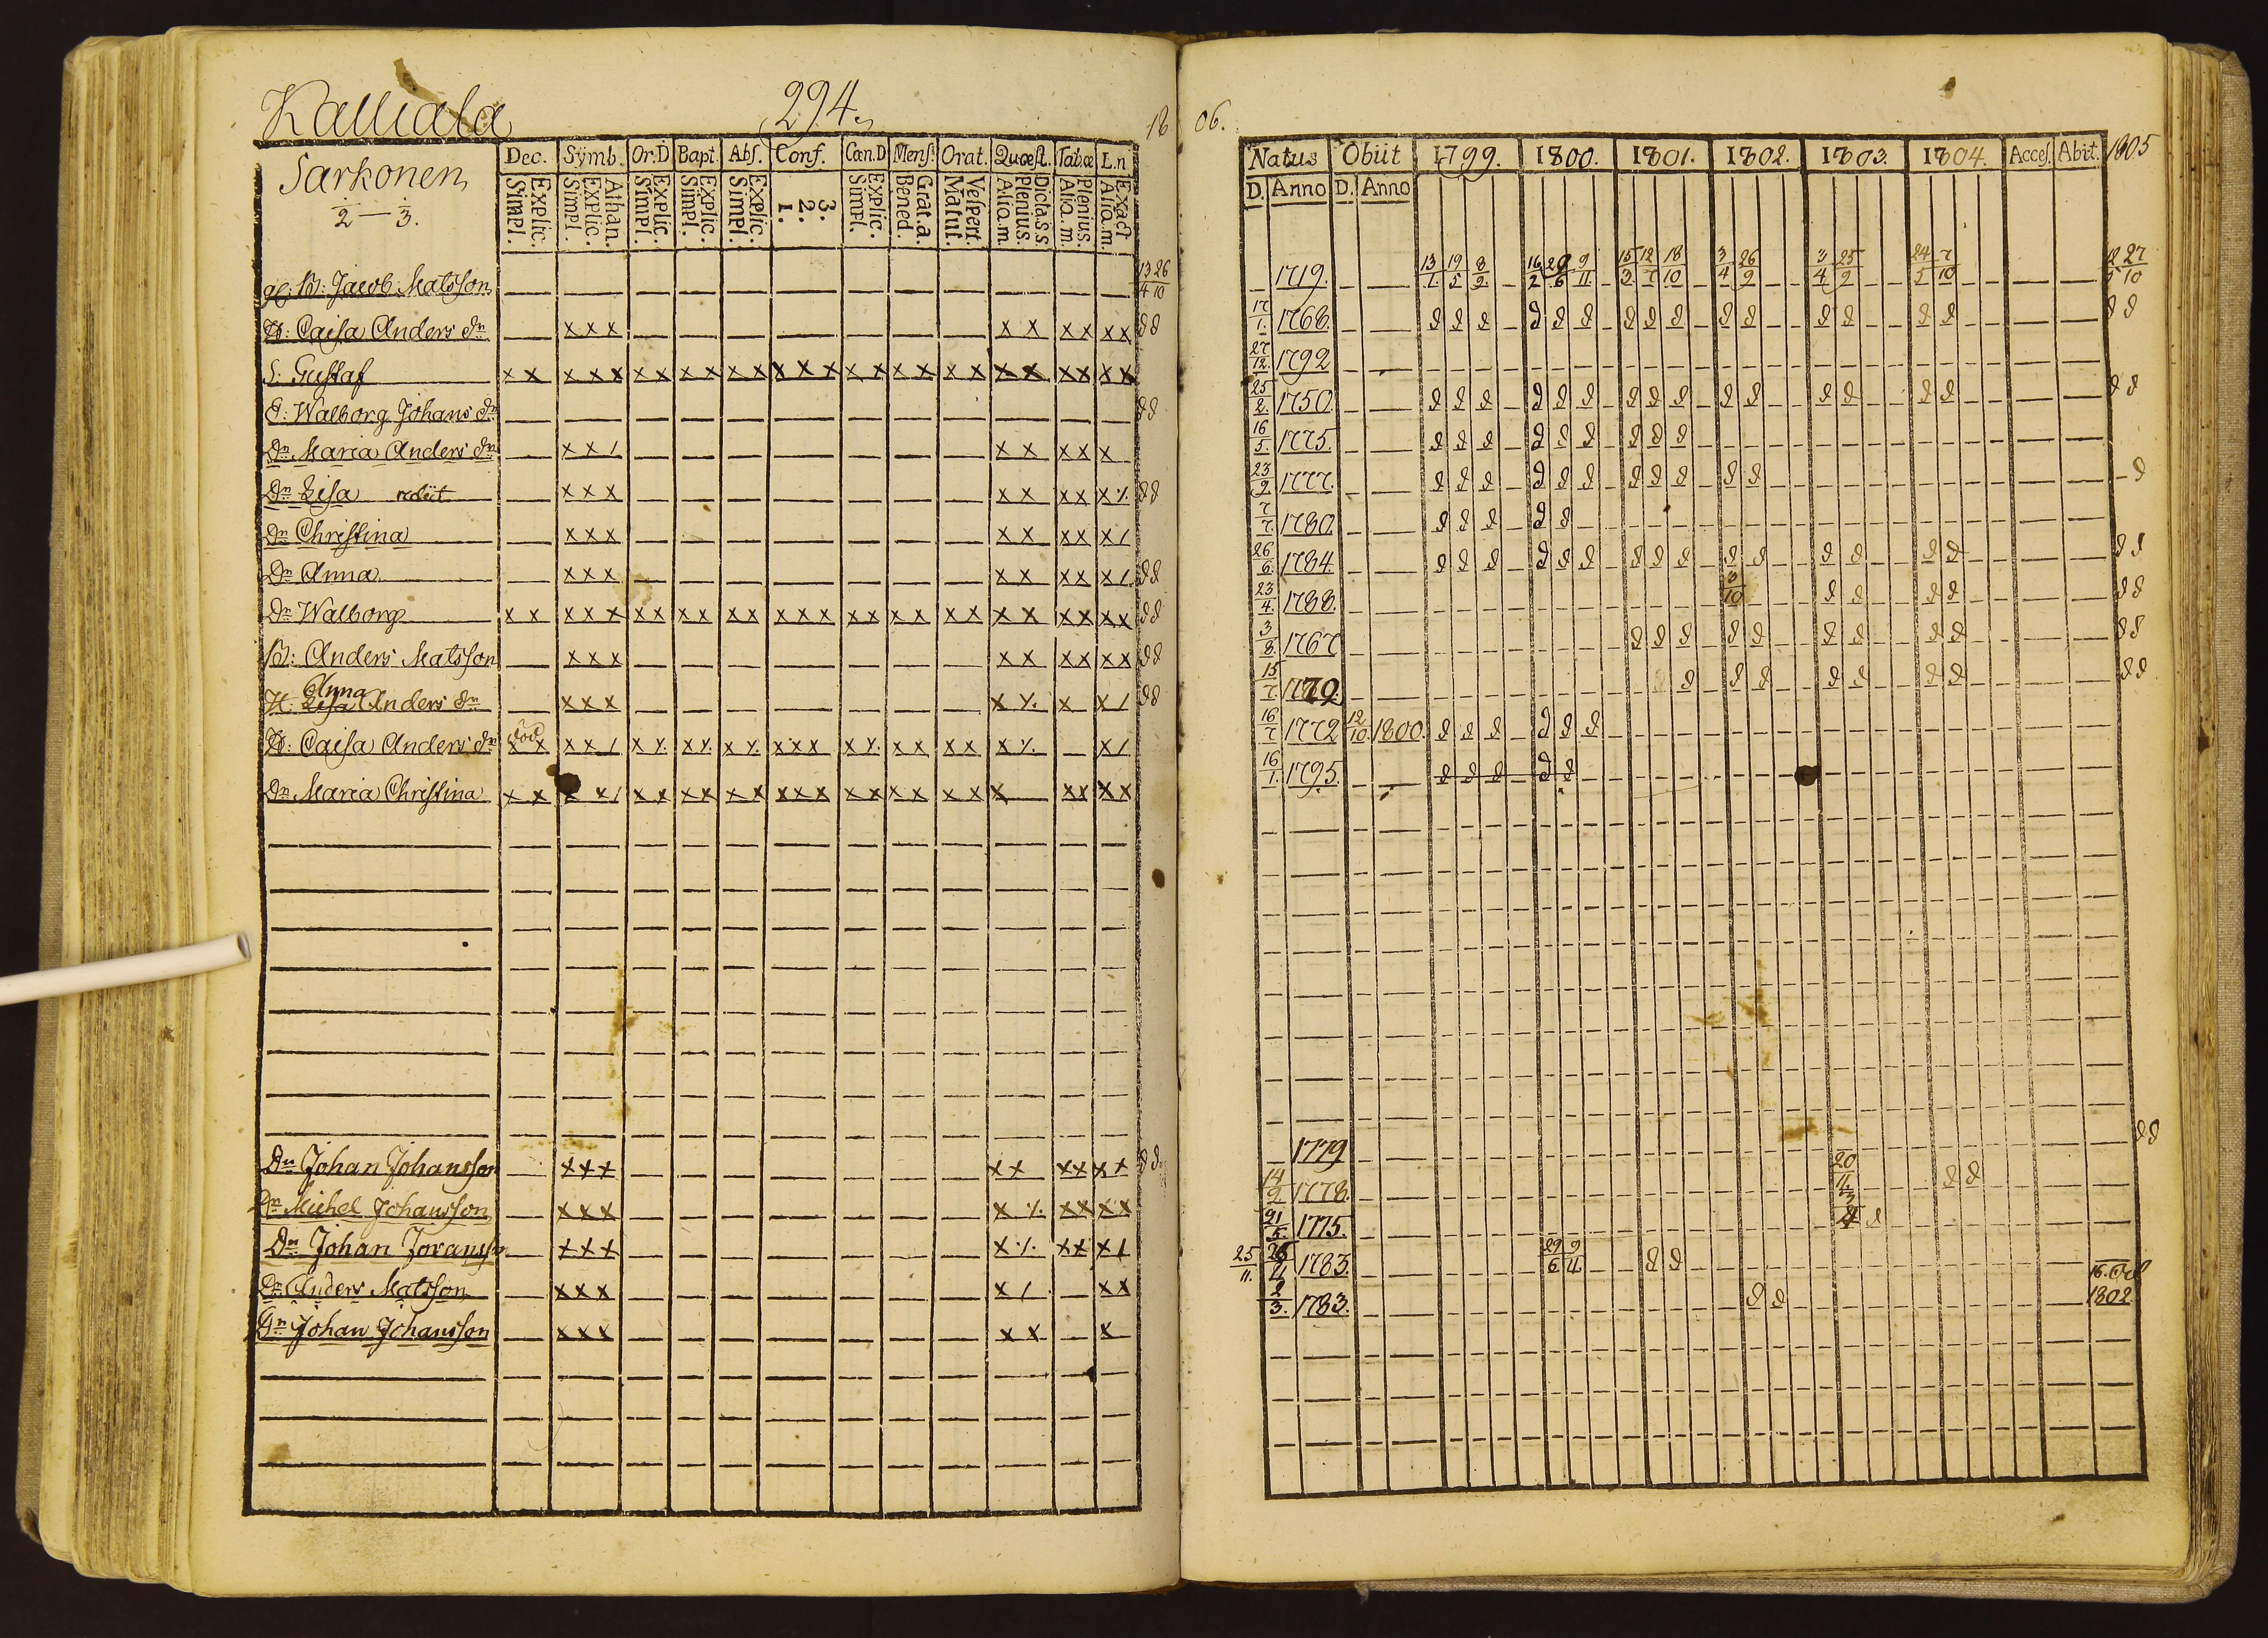 Kalliala 294.
Sarkonen
2 — 3.
Dec. Symb. Or.D Bapt. Abs. Conf. Cœn.D Mens. Orat. Quæst. Tabæ L.n
Explic. Simpl. Athan. Explic. Simpl. Explic. Simpl. Explic. Simpl. Explic. Simpl. 3. 2. 1. Explic. Simpl. Grat.a. Bened. Vespert. Matut. Dicta.s.s Plenius. Alia.m. Plenius. Alia.m. Exact Alia.m.
Jacob Matsson 13 26 4 10
H: Caisa Anders dr x x x x x x x x x d d
S: Gustaf x x x x x x x x x x x x x x x x x x x x x x x x x x
E: Walborg Johans dr d d
Dr Maria Anders dr x x / x x x x x
Dr Lisa rediit x x x x x x x x ⁒ d d
Dr Christina x x x x x x x x /
Dr Anna x x x x x x x x / d d
Dr Walborg x x x x x x x x x x x x x x x x x x x x x x x x x x d d
Anders Matsson x x x x x x x x x d d
H: Lisa Anna Anders dr x x x x ⁒ x x / d d
H: Caisa Anders dr död x x x x / x ⁒ x ⁒ x ⁒ x x x x ⁒ x x x x x ⁒ x /
Dr Maria Christina x x x x / x x x x x x x x x x x x x x x x x x x x x
Dn Johan Johansson x x x x x x x x x d d
Dn Michel Johansson x x x x ⁒ x x x x
Dn Johan Joransson x x x x ⁒ x x x /
Dn Anders Matsson x x x x / x x
Johan Johansson x x x x x x
18 06.
Natus Obiit 1799. 1800. 1801. 1802. 1803. 1804. Acces. Abit. 1805
D. Anno D. Anno
1719. 13/1. 19/5 8/9. 16/2 29/6 9/11. 15/3. 12/7 18/10 3/4 26/9 3/4 25/9 24/5 7/10 12/5 27/10
17/1. 1768. d d d d d d d d d d d d d d d d d
27/12. 1792
25/2. 1750. d d d d d d d d d d d d d d d d d
16/5. 1775. d d d d d d d d d
23/9 1777. d d d d d d d d d d d d
7/7 1780. d d d d d
26/6 1784 d d d d d d d d d d d d d d d d d
23/4. 1788. 3/10 d d d d d d
3/8. 1767 d d d d d d d d d d d
15/7. 1779. d d d d d d d d d
16/7 1772 12/10 1800. d d d d d d
16/1. 1795. d d d d d
1779 d d
14/2 1778. 20/11. d d
21/5. 1775. d
25/11. 1783. 29/6 9/11. d d
2/3. 1783. d d 16. Oct 1802